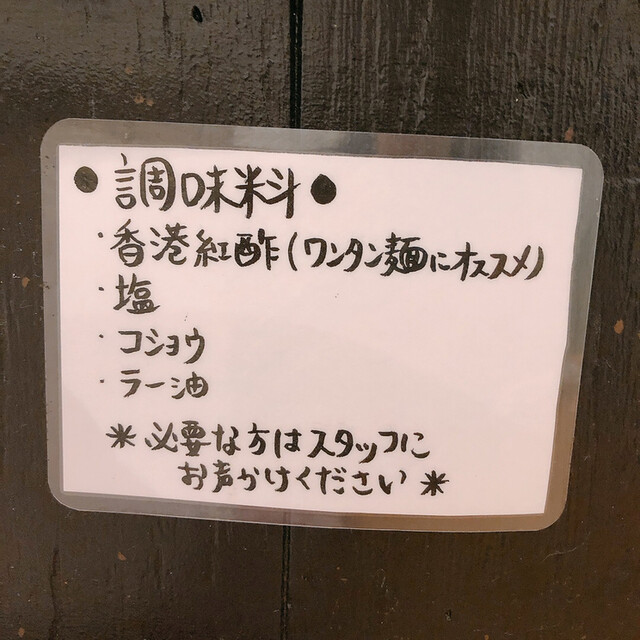 ●調味料●
・香港紅酢(ワンタン麺にオススメ)
・塩
・コショウ
・ラー油
＊必要な方はスタッフに
お声かけください＊